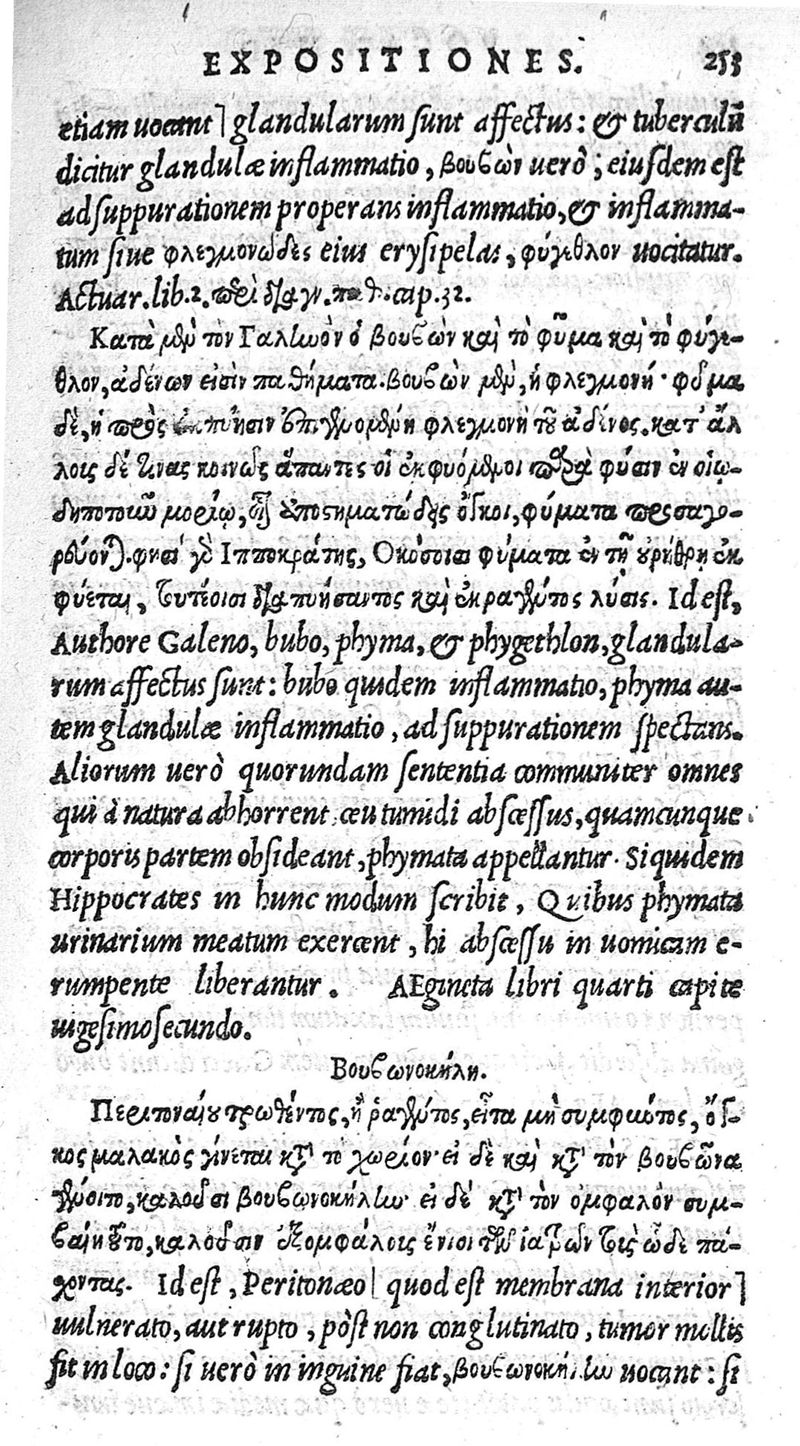 EXPOSITIONES. 253
etiam uocant] glandularum sunt affectus: & tuberculũ
dicitur glandulæ inflammatio, βουβὼν uerò; eiusdem est
ad suppurationem properans inflammatio, & inflamma-
tum siue φλεγμονῶδες eius erysipelas, φύγεθλον uocitatur.
Actuar. lib. 2. περὶ διαγν. παθ. cap. 32.
Κατὰ μὲν τὸν Γαλίωὸν ὁ βουβὼν καὶ τὸ φῦμα καὶ τὸ φύγε-
θλον, ἀδένων εἰσὶν παθήματα. βουβὼν μὲν, ἡ φλεγμονή· φῦμα
δὲ, ἡ πρὸς ἐκπύησιν ἐπειγομένη φλεγμονὴ τοῦ ἀδένος. κατ' ἄλ
λοις δέ τινας κοινῶς ἅπαντες οἱ ἐκφυόμενοι παρὰ φύσιν ἐν οἱῳ-
δηποτοιοῦν μορίῳ, ἀποστηματώδης ὄγκοι, φύματα προσαγο-
ρεύονται. φησὶ γὰρ Ἱπποκράτης, Ὁκόσοισι φύματα ἐν τῇ οὐρήθρῃ ἐκ
φύεται, τουτέοισι διαπυήσαντος καὶ ἐκραγέντος λύσις. Id est,
Authore Galeno, bubo, phyma, & phygethlon, glandula-
rum affectus sunt: bubo quidem inflammatio, phyma au-
tem glandulæ inflammatio, ad suppurationem spectans.
Aliorum uerò quorundam sententia communiter omnes
qui à natura abhorrent ceu tumidi abscessus, quamcunque
corporis partem obsideant, phymata appellantur. Siquidem
Hippocrates in hunc modum scribit, Quibus phymata
urinarium meatum exercent, hi abscessu in uomicam e-
rumpente liberantur. AEgineta libri quarti capite
uigesimosecundo.
Βουβωνοκήλη.
Περιτοναίου τρωθέντος, ἢ ῥαγέντος, εἶτα μὴ συμφυῶτος, ὄγ-
κος μαλακὸς γίνεται κατὰ τὸ χωρίον· εἰ δὲ καὶ κατὰ τὸν βουβῶνα
γένοιτο, καλοῦσι βουβωνοκήλην· εἰ δὲ κατὰ τὸν ὀμφαλὸν συμ-
βαίη τοῦτο, καλοῦσιν ἐξομφάλοις ἔνιοι τῶν ἰατρῶν τοὺς ὧδε πά-
χοντας. Id est, Peritonæo [quod est membrana interior]
uulnerato, aut rupto, pòst non conglutinato, tumor mollis
fit in loco: si uerò in inguine fiat, βουβωνοκήλην uocant: si